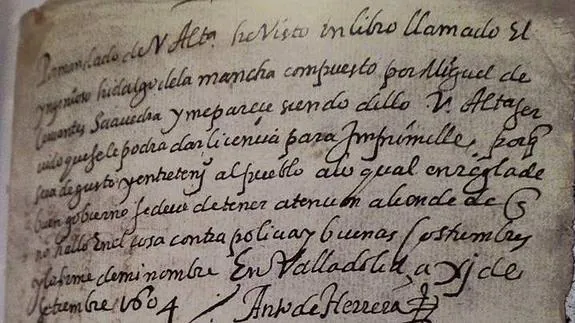 Por mandado de V. Alta. he visto un libro llamado El
yngenioso hidalgo de la mancha compuesto por Miguel de
Cervantes Saavedra y me parece siendo dello V. Alta. ser
vido que se le podra dar licencia para Imprimille, porq
sera de gusto y entretenimi al pueblo a lo qual en regla de
buen gobierno se deve de tener atencion aliende de q
no hallo En el cosa contra policia y buenas costumbres
y lo firme de mi nombre En Valladolid, a xj de
setiembre 1604 / Anto de Herrera